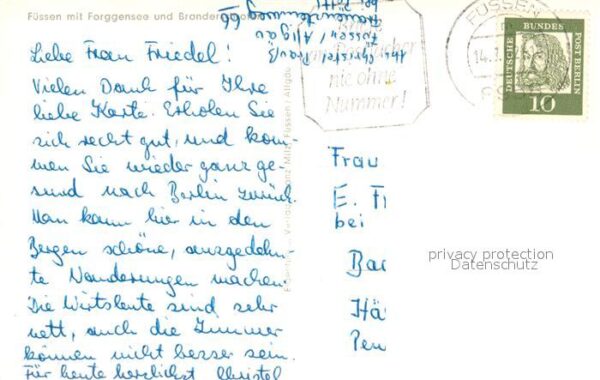 Füssen mit Forggensee und
Liebe Frau Friedel!
Vielen Dank für Ihre
liebe Karte. Erholen Sie
sich recht gut, und kom-
men Sie wieder ganz ge-
sund nach Berlin zurück.
Man kann hier in den
Bergen schöne, ausgedehn-
te Wanderungen machen.
Die Wirtsleute sind sehr
nett, auch die Zimmer
können nicht besser sein.
Für heute herzlichst Christel
Füssen Allgäu
nie ohne
Nummer!
FÜSSEN
DEUTSCHE BUNDES POST BERLIN
10
Frau
E. Fr
bei
privacy protection
Datenschutz